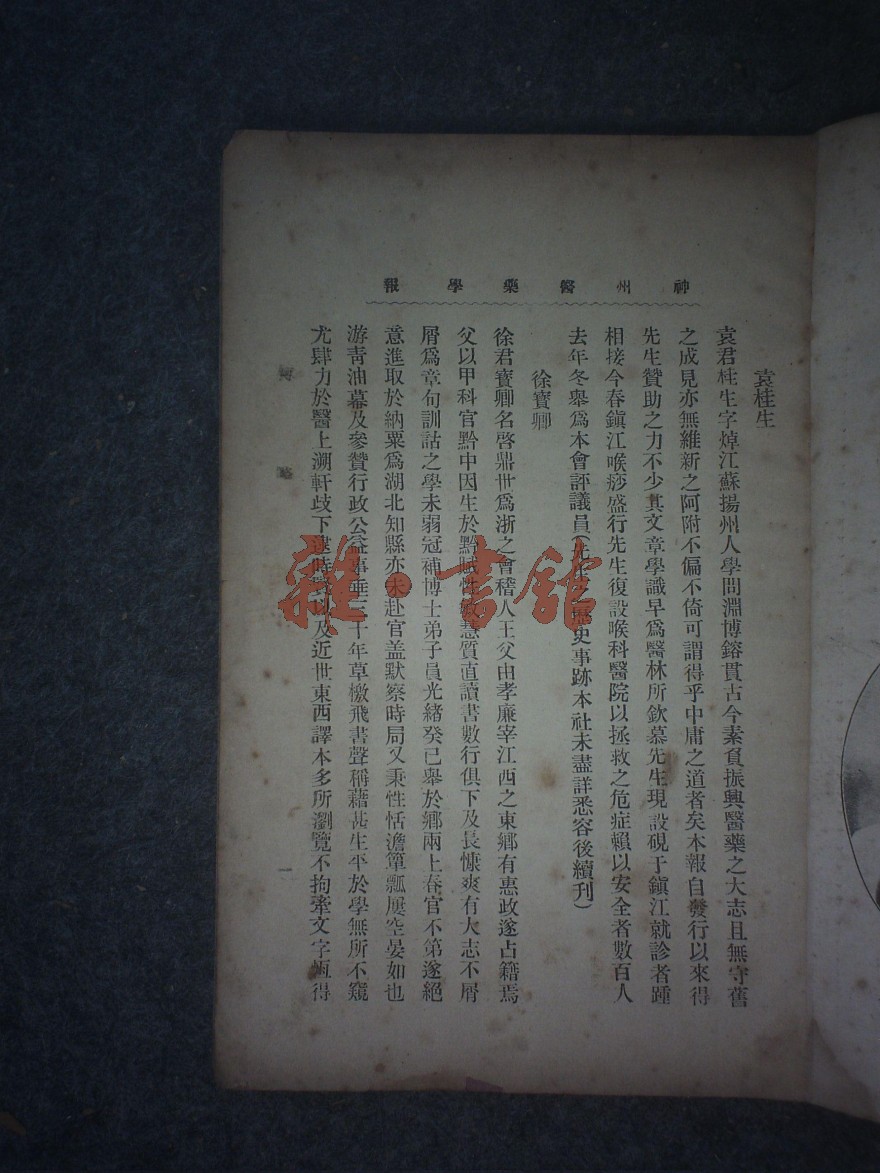 神州醫藥學報
袁桂生
袁君桂生字焯江蘇揚州人學問淵博鎔貫古今素負振興醫藥之大志且無守舊
之成見亦無維新之阿附不偏不倚可謂得乎中庸之道者矣本報自發行以來得
先生贊助之力不少其文章學識早爲醫林所欽慕先生現設硯于鎮江就診者踵
相接今春鎮江喉痧盛行先生復設喉科醫院以拯救之危症賴以安全者數百人
去年冬舉爲本會評議員(先生之歷史事跡本社未盡詳悉容後續刊)
徐寶卿
徐君寶卿名啓鼎世爲浙之會稽人王父由孝廉宰江西之東鄉有惠政遂占籍焉
父以甲科官黔中因生於黔賦性敏慧質直讀書數行俱下及長慷爽有大志不屑
屑爲章句訓詁之學未弱冠補博士弟子員光緒癸巳舉於鄉兩上春官不第遂絕
意進取於納粟爲湖北知縣亦未赴官盖默察時局又秉性恬澹簞瓢屢空晏如也
游青油幕及參贊行政公益事垂三十年草檄飛書聲稱藉甚生平於學無所不窺
尤肆力於醫上溯軒歧下逮時賢以及近世東西譯本多所瀏覽不拘牽文字恆得
一
雜·書館